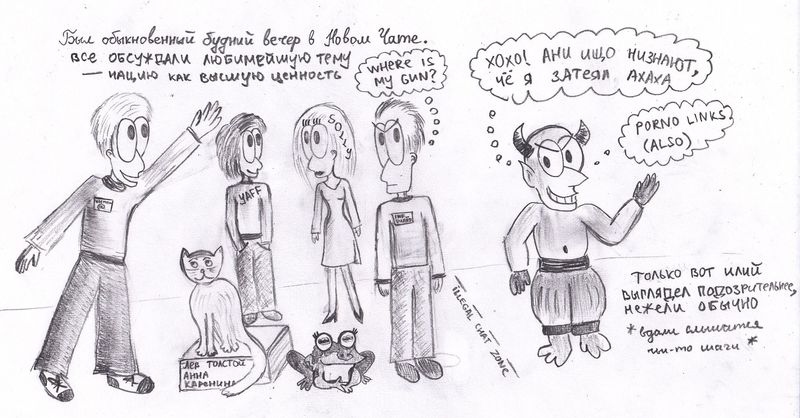 Был обыкновенный будний вечер в Новом Чате.
ВСЕ ОБСУЖДАЛИ ЛЮБИМЕЙШУЮ ТЕМУ
— НАЦИЮ КАК ВЫСШУЮ ЦЕННОСТЬ
WHERE IS
MY GUN?
ХОХО! АНИ ИЩО НИЗНАЮТ,
ЧЁ Я ЗАТЕЯЛ АХАХА
PORNO LINKS
(ALSO)
YAFF
SOLLY
ЛЕВ ТОЛСТОЙ
АННА
КАРЕНИНА
ILLEGAL CHAT ZONE
ТОЛЬКО ВОТ ИЛИЙ
ВЫГЛЯДЕЛ ПОДОЗРИТЕЛЬНЕЕ,
НЕЖЕЛИ ОБЫЧНО
*вдали слышатся
чьи-то шаги*